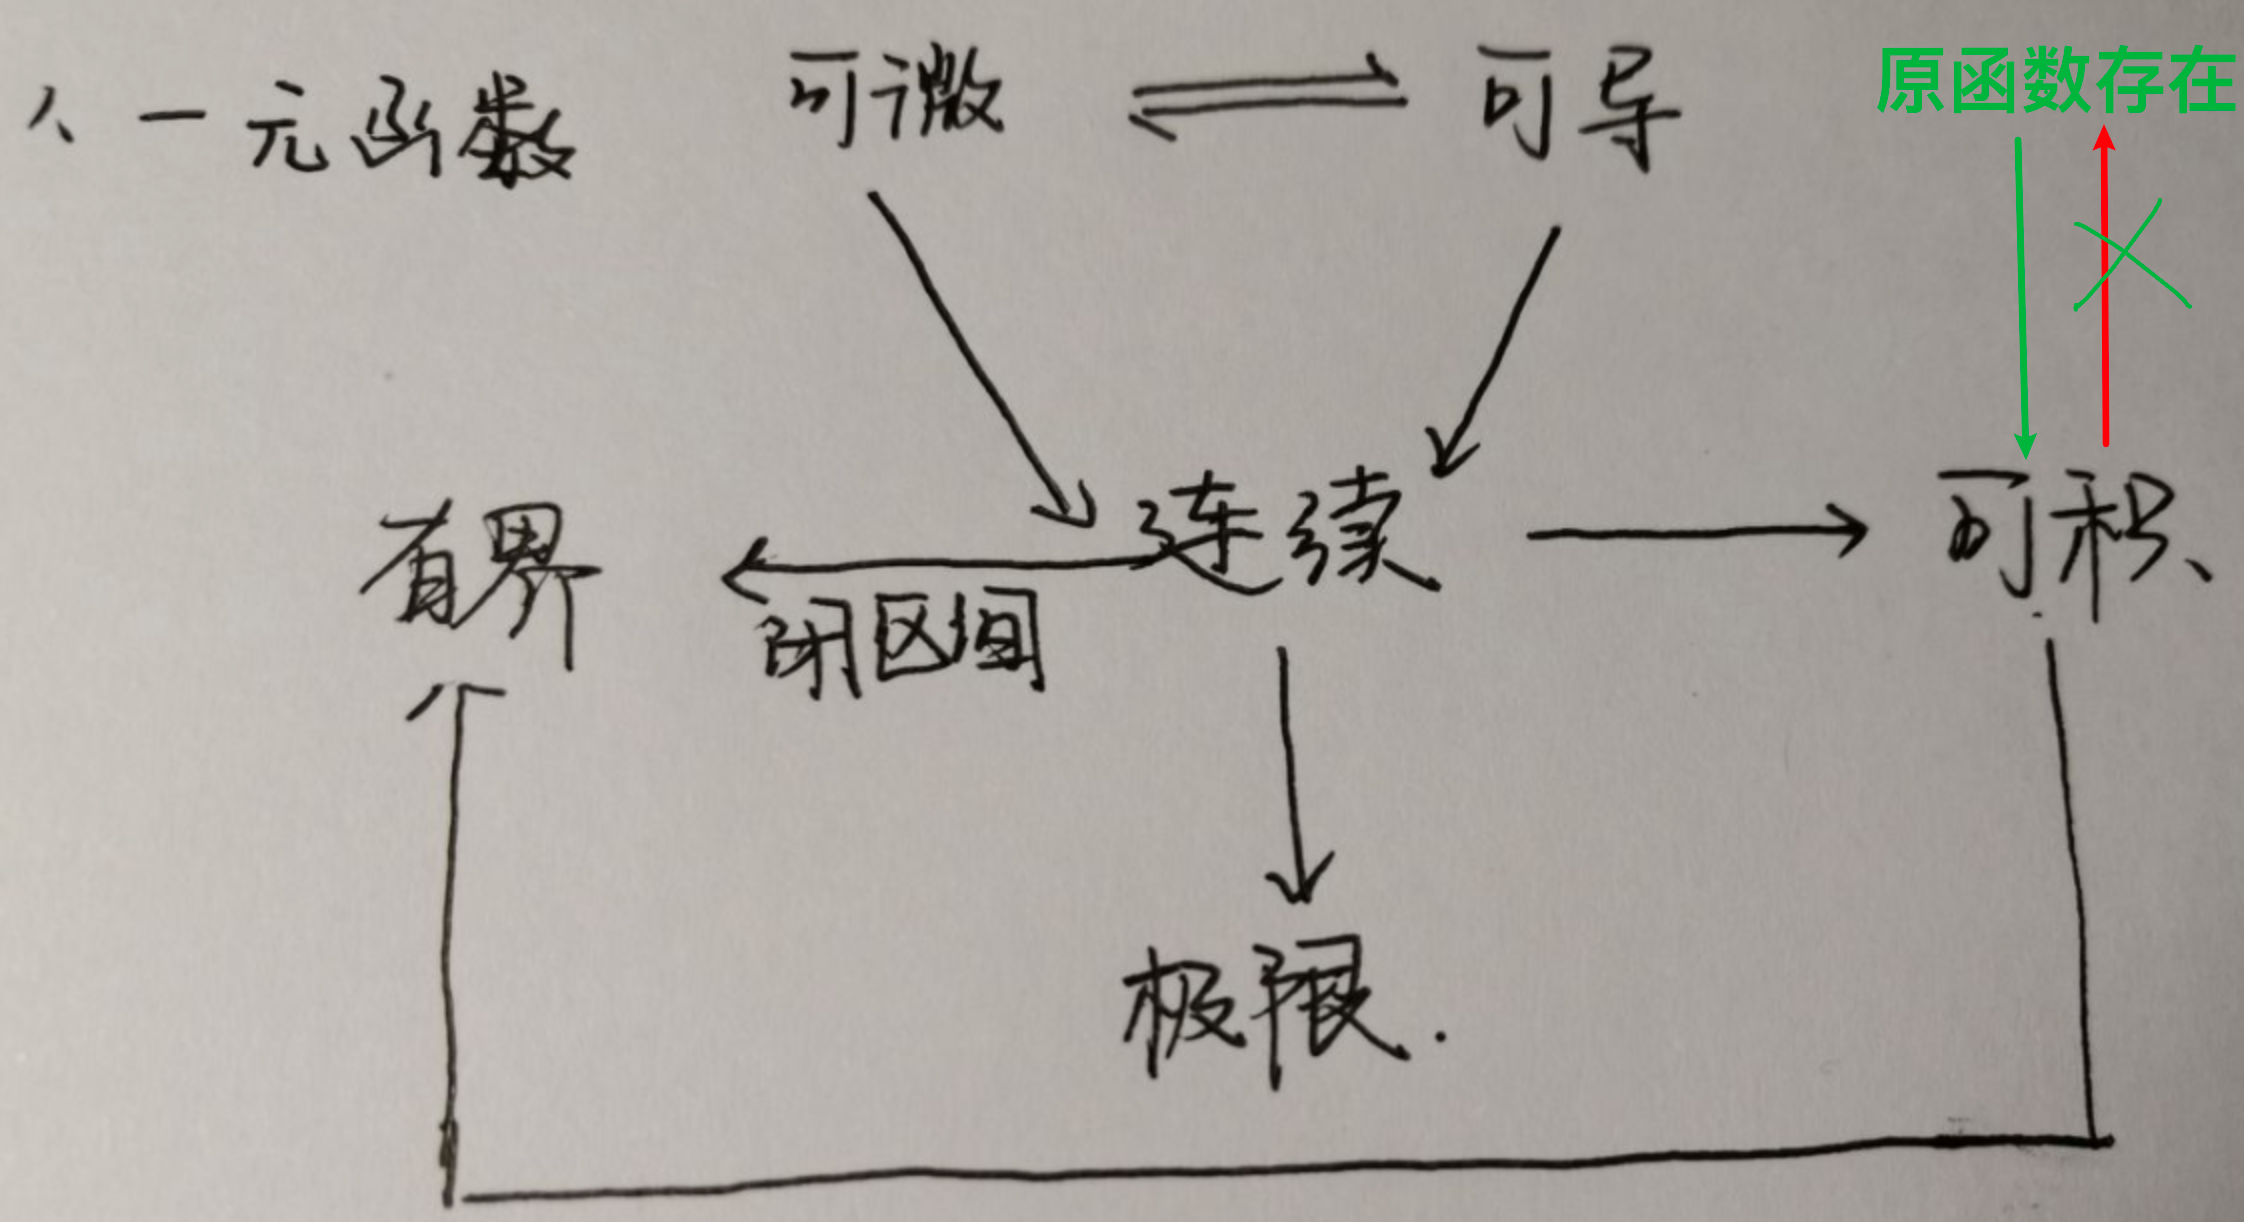 一元函数
可微
可导
原函数存在
有界
闭区间
连续
可积
极限.